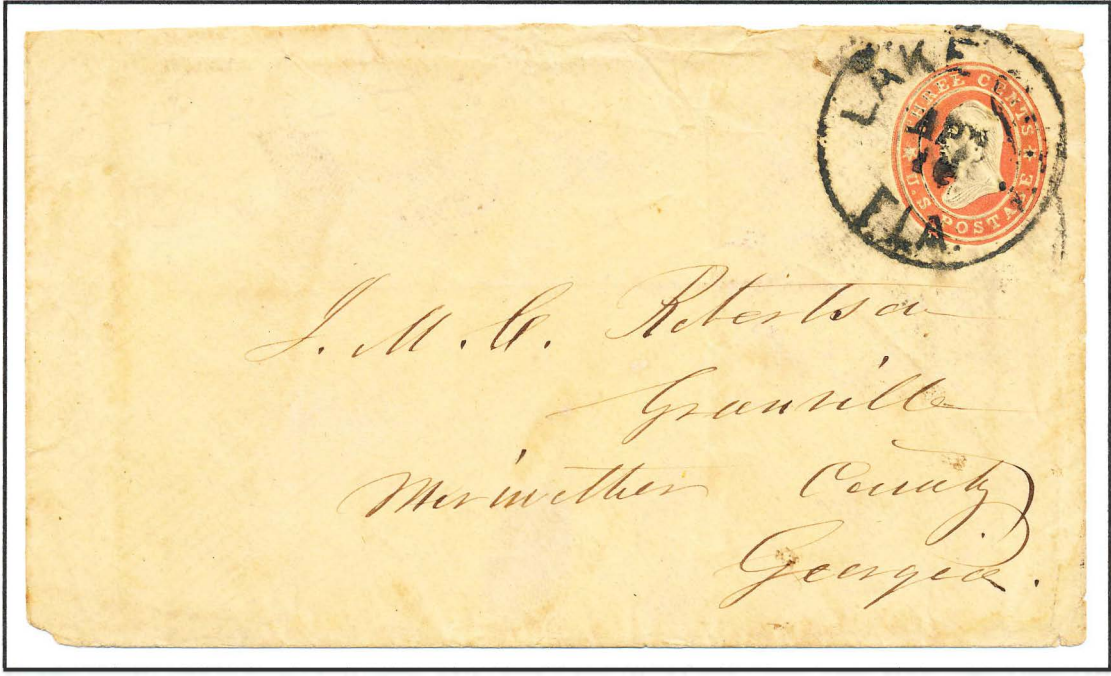 LAKE
APR
FLA.
THREE CENTS
U.S. POSTAGE
J. M. C. Robertson
Greenville
Meriwether County
Georgia.